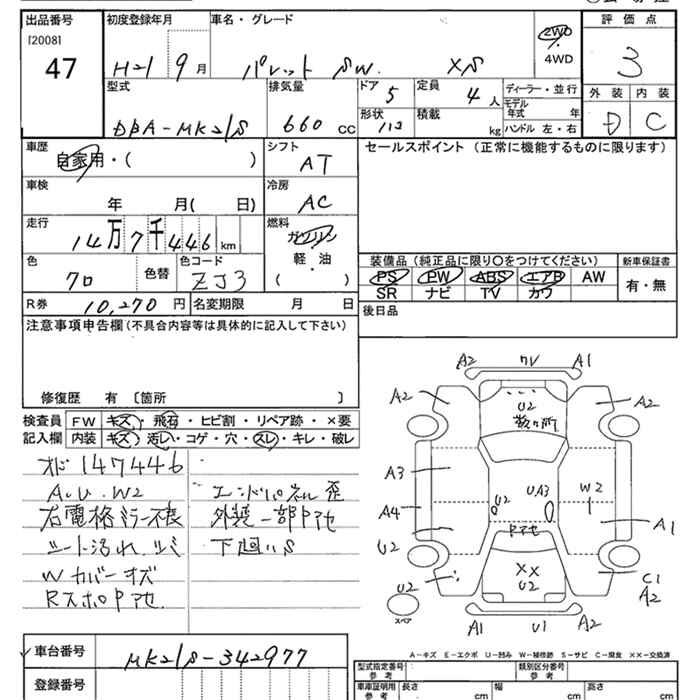 出品番号 初度登録年月 車名・グレード 2WD 評価点
[2008] 4WD
47 H21 9月 パレット SW XS 3
型式 排気量 ドア 5 定員 4人 ディーラー・並行 外装 内装
DBA-MK21S 660 CC 形状 積載 kg モデル年式 年 D C
ハンドル 左・右
車歴 シフト セールスポイント(正常に機能するものに限ります)
自家用・( ) AT
車検 冷房
年 月( 日) AC
走行 燃料
14万7千446km ガソリン
軽・油
( )
色 色替 色コード 装備品(純正品に限り○をつけてください) 新車保証書
クロ ZJ3 PS PW ABS エアB AW 有・無
SR ナビ TV カワ
R券 10,270円 名変期限 月 日 後日品
注意事項申告欄(不具合内容等は具体的に記入して下さい)
修復歴 有 〔箇所 〕
検査員 FW キズ・飛石・ヒビ割・リペア跡・×要
記入欄 内装 キズ・汚レ・コゲ・穴・スレ・キレ・破レ
147446
A.U.W2 エンドパネル歪
外装一部Pアセ
シート汚れ、シミ 下廻りS
Wカバーキズ
RスポPアセ
A2 A1
A2 U2 A2
数ヶ所
A3 U2 UA3 W2
A4 A1
U2 Pアセ
XX C1
U2 U2 A2
スペア A1 U1 A2
A-キズ E-エクボ U-凹み W-補修跡 S-サビ C-腐食 XX-交換済
車台番号 MK21S-342977
登録番号
型式指定番号 参考 類別区分番号 参考
車庫証明用 参考 長さ cm 幅 cm 高さ cm